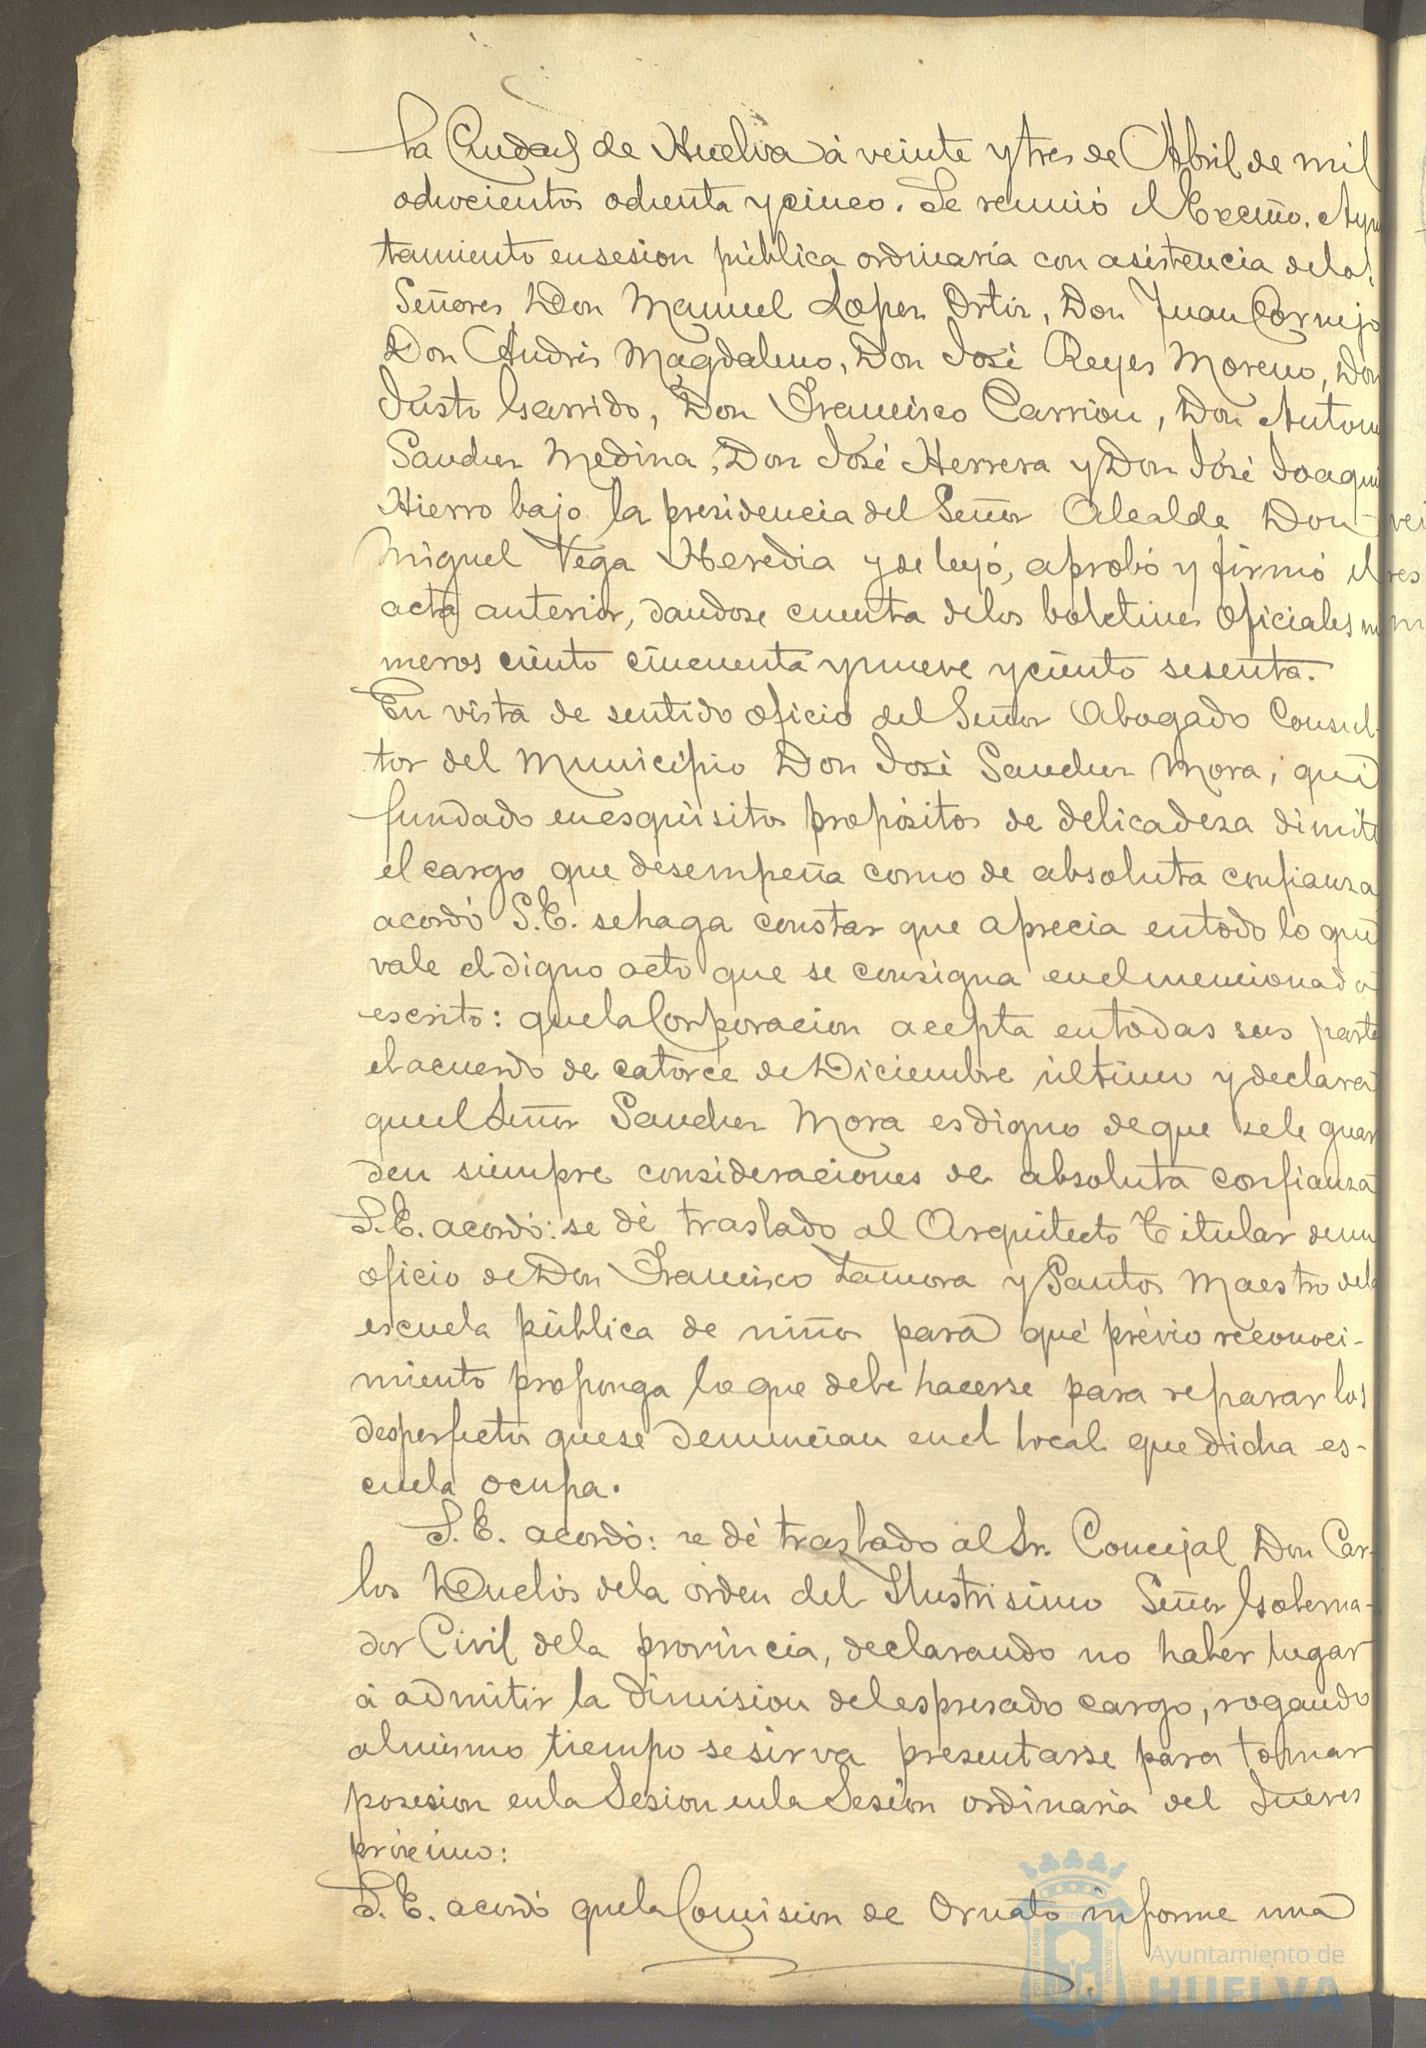 la Ciudad de Huelva á veinte y tres de Abril de mil
ochocientos ochenta y cinco. Se reunió el Excmo. Ayun
tamiento en sesion pública ordinaria con asistencia de los
Señores Don Manuel Lopez Ortiz, Don Juan Cornejo
Don Andrés Magdaleno, Don José Reyes Moreno, Don
Justo Garrido, Don Francisco Carrion, Don Antonio
Sanchez Medina, Don José Herrera y Don José Joaquin
Hierro bajo la presidencia del Señor Alcalde Don
Miguel Vega Heredia y se leyó, aprobó y firmó el
acta anterior, dandose cuenta de los boletines oficiales nu
meros ciento cincuenta y nueve y ciento sesenta.
En vista de sentido oficio del Señor Abogado Consul-
tor del Municipio Don José Sanchez Mora, que
fundado en esquisitos propósitos de delicadeza dimite
el cargo que desempeña como de absoluta confianza
acordó S.E. se haga constar que aprecia en todo lo que
vale el digno acto que se consigna en el mencionado
escrito: que la Corporacion acepta en todas sus partes
el acuerdo de catorce de Diciembre último y declara
que el Señor Sanchez Mora es digno de que se le guar
den siempre consideraciones de absoluta confianza
S.E. acordó: se dé traslado al Arquitecto Titular de un
oficio de Don Francisco Zamora y Santos Maestro de la
escuela pública de niños para que prévio reconoci-
miento proponga lo que debe hacerse para reparar los
desperfectos que se denuncian en el local que dicha es-
cuela ocupa.
S.E. acordó: se dé traslado al Sr. Concejal Don Car-
los Duclós de la orden del Ilustrisimo Señor Goberna-
dor Civil de la provincia, declarando no haber lugar
á admitir la dimision del espresado cargo, rogando
al mismo tiempo se sirva presentarse para tomar
posesion en la Sesion en la Sesion ordinaria del Jueves
próximo:
S.E. acordó que la Comision de Ornato informe una
Ayuntamiento de
HUELVA